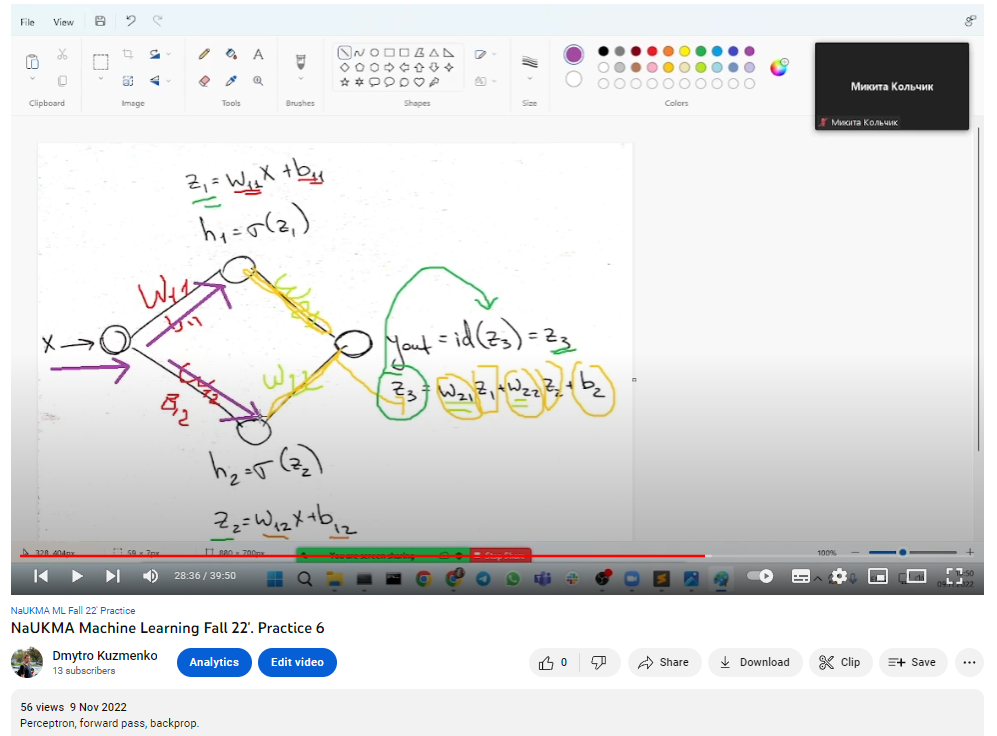 File View
Clipboard Image Tools Brushes Shapes Size Colors
Микита Кольчик
Микита Кольчик
z₁ = w₁₁x + b₁₁
h₁ = σ(z₁)
W₁₁
b₁₁
W₂₁
x
y out = id(z₃) = z₃
z₃ = w₂₁ z₁ + w₂₂ z₂ + b₂
W₂₂
h₂ = σ(z₂)
z₂ = w₁₂x + b₁₂
328, 404px 59 × 7px 880 × 700px You are screen sharing Stop Share 100%
28:36 / 39:50
NaUKMA ML Fall 22' Practice
NaUKMA Machine Learning Fall 22'. Practice 6
Dmytro Kuzmenko
13 subscribers
Analytics Edit video 0 Share Download Clip Save
56 views 9 Nov 2022
Perceptron, forward pass, backprop.